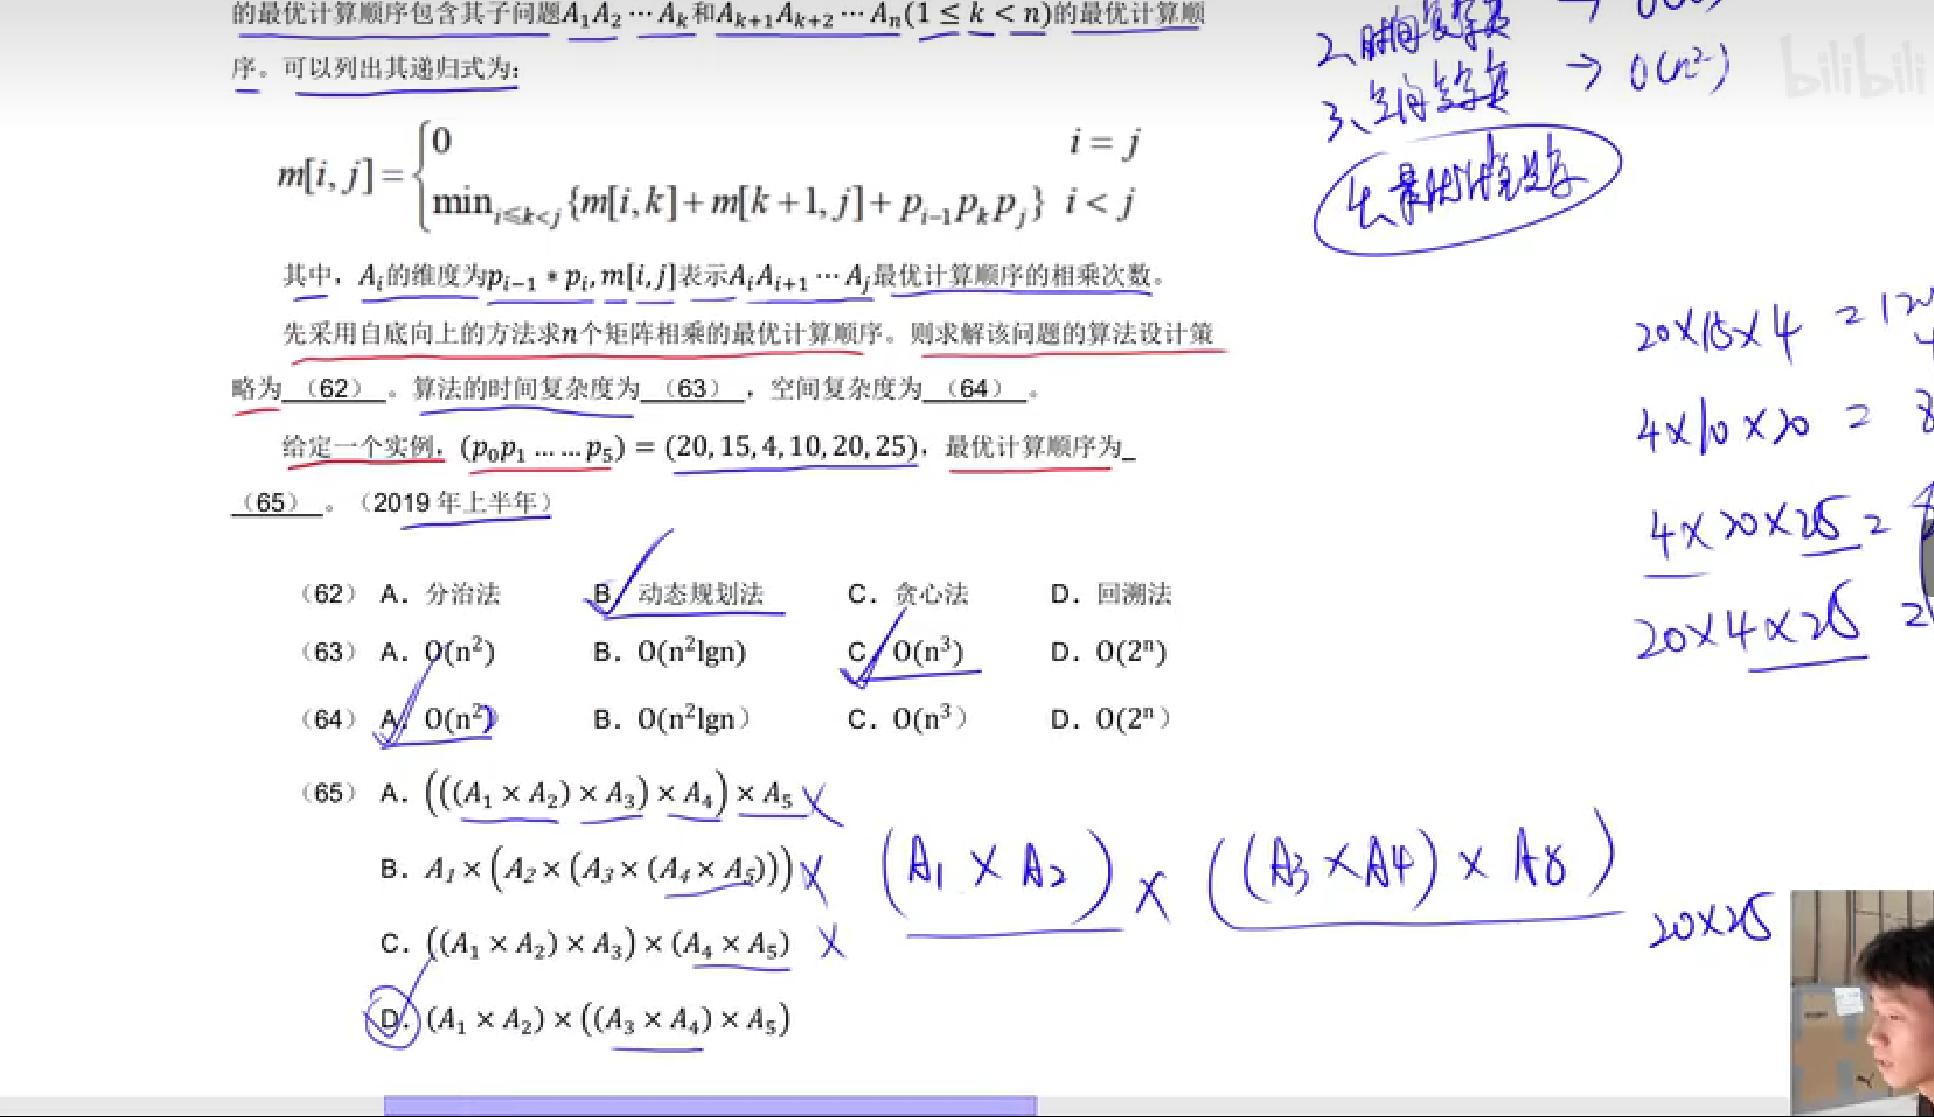 的最优计算顺序包含其子问题A₁A₂ ⋯ Aₖ和Aₖ₊₁Aₖ₊₂ ⋯ Aₙ(1 ≤ k < n)的最优计算顺
序。可以列出其递归式为:
m[i, j] = { 0    i = j
min_{i≤k<j} {m[i, k] + m[k + 1, j] + p_{i−1} p_k p_j}    i < j
其中，A_i的维度为p_{i−1} * p_i, m[i, j]表示A_iA_{i+1} ⋯ A_j最优计算顺序的相乘次数。
先采用自底向上的方法求n个矩阵相乘的最优计算顺序。则求解该问题的算法设计策
略为 （62） 。算法的时间复杂度为 （63） ，空间复杂度为 （64） 。
给定一个实例，(p₀p₁ ……p₅) = (20, 15, 4, 10, 20, 25)，最优计算顺序为_
（65） 。（2019 年上半年）
（62） A. 分治法 B. 动态规划法 C. 贪心法 D. 回溯法
（63） A. O(n²) B. O(n²lgn) C. O(n³) D. O(2ⁿ)
（64） A. O(n²) B. O(n²lgn） C. O(n³） D. O(2ⁿ）
（65） A. (((A₁ × A₂) × A₃) × A₄) × A₅ ×
B. A₁ × (A₂ × (A₃ × (A₄ × A₅))) ×
C. ((A₁ × A₂) × A₃) × (A₄ × A₅) ×
D. (A₁ × A₂) × ((A₃ × A₄) × A₅)
2、时间复杂度 →
3、空间复杂度 → O(n²)
4、最优计算顺序
bilibili
20×15×4 =
4×10×20 =
4×20×25 =
20×4×25
(A₁ × A₂) × ((A₃ × A₄) × A₅)
20×25